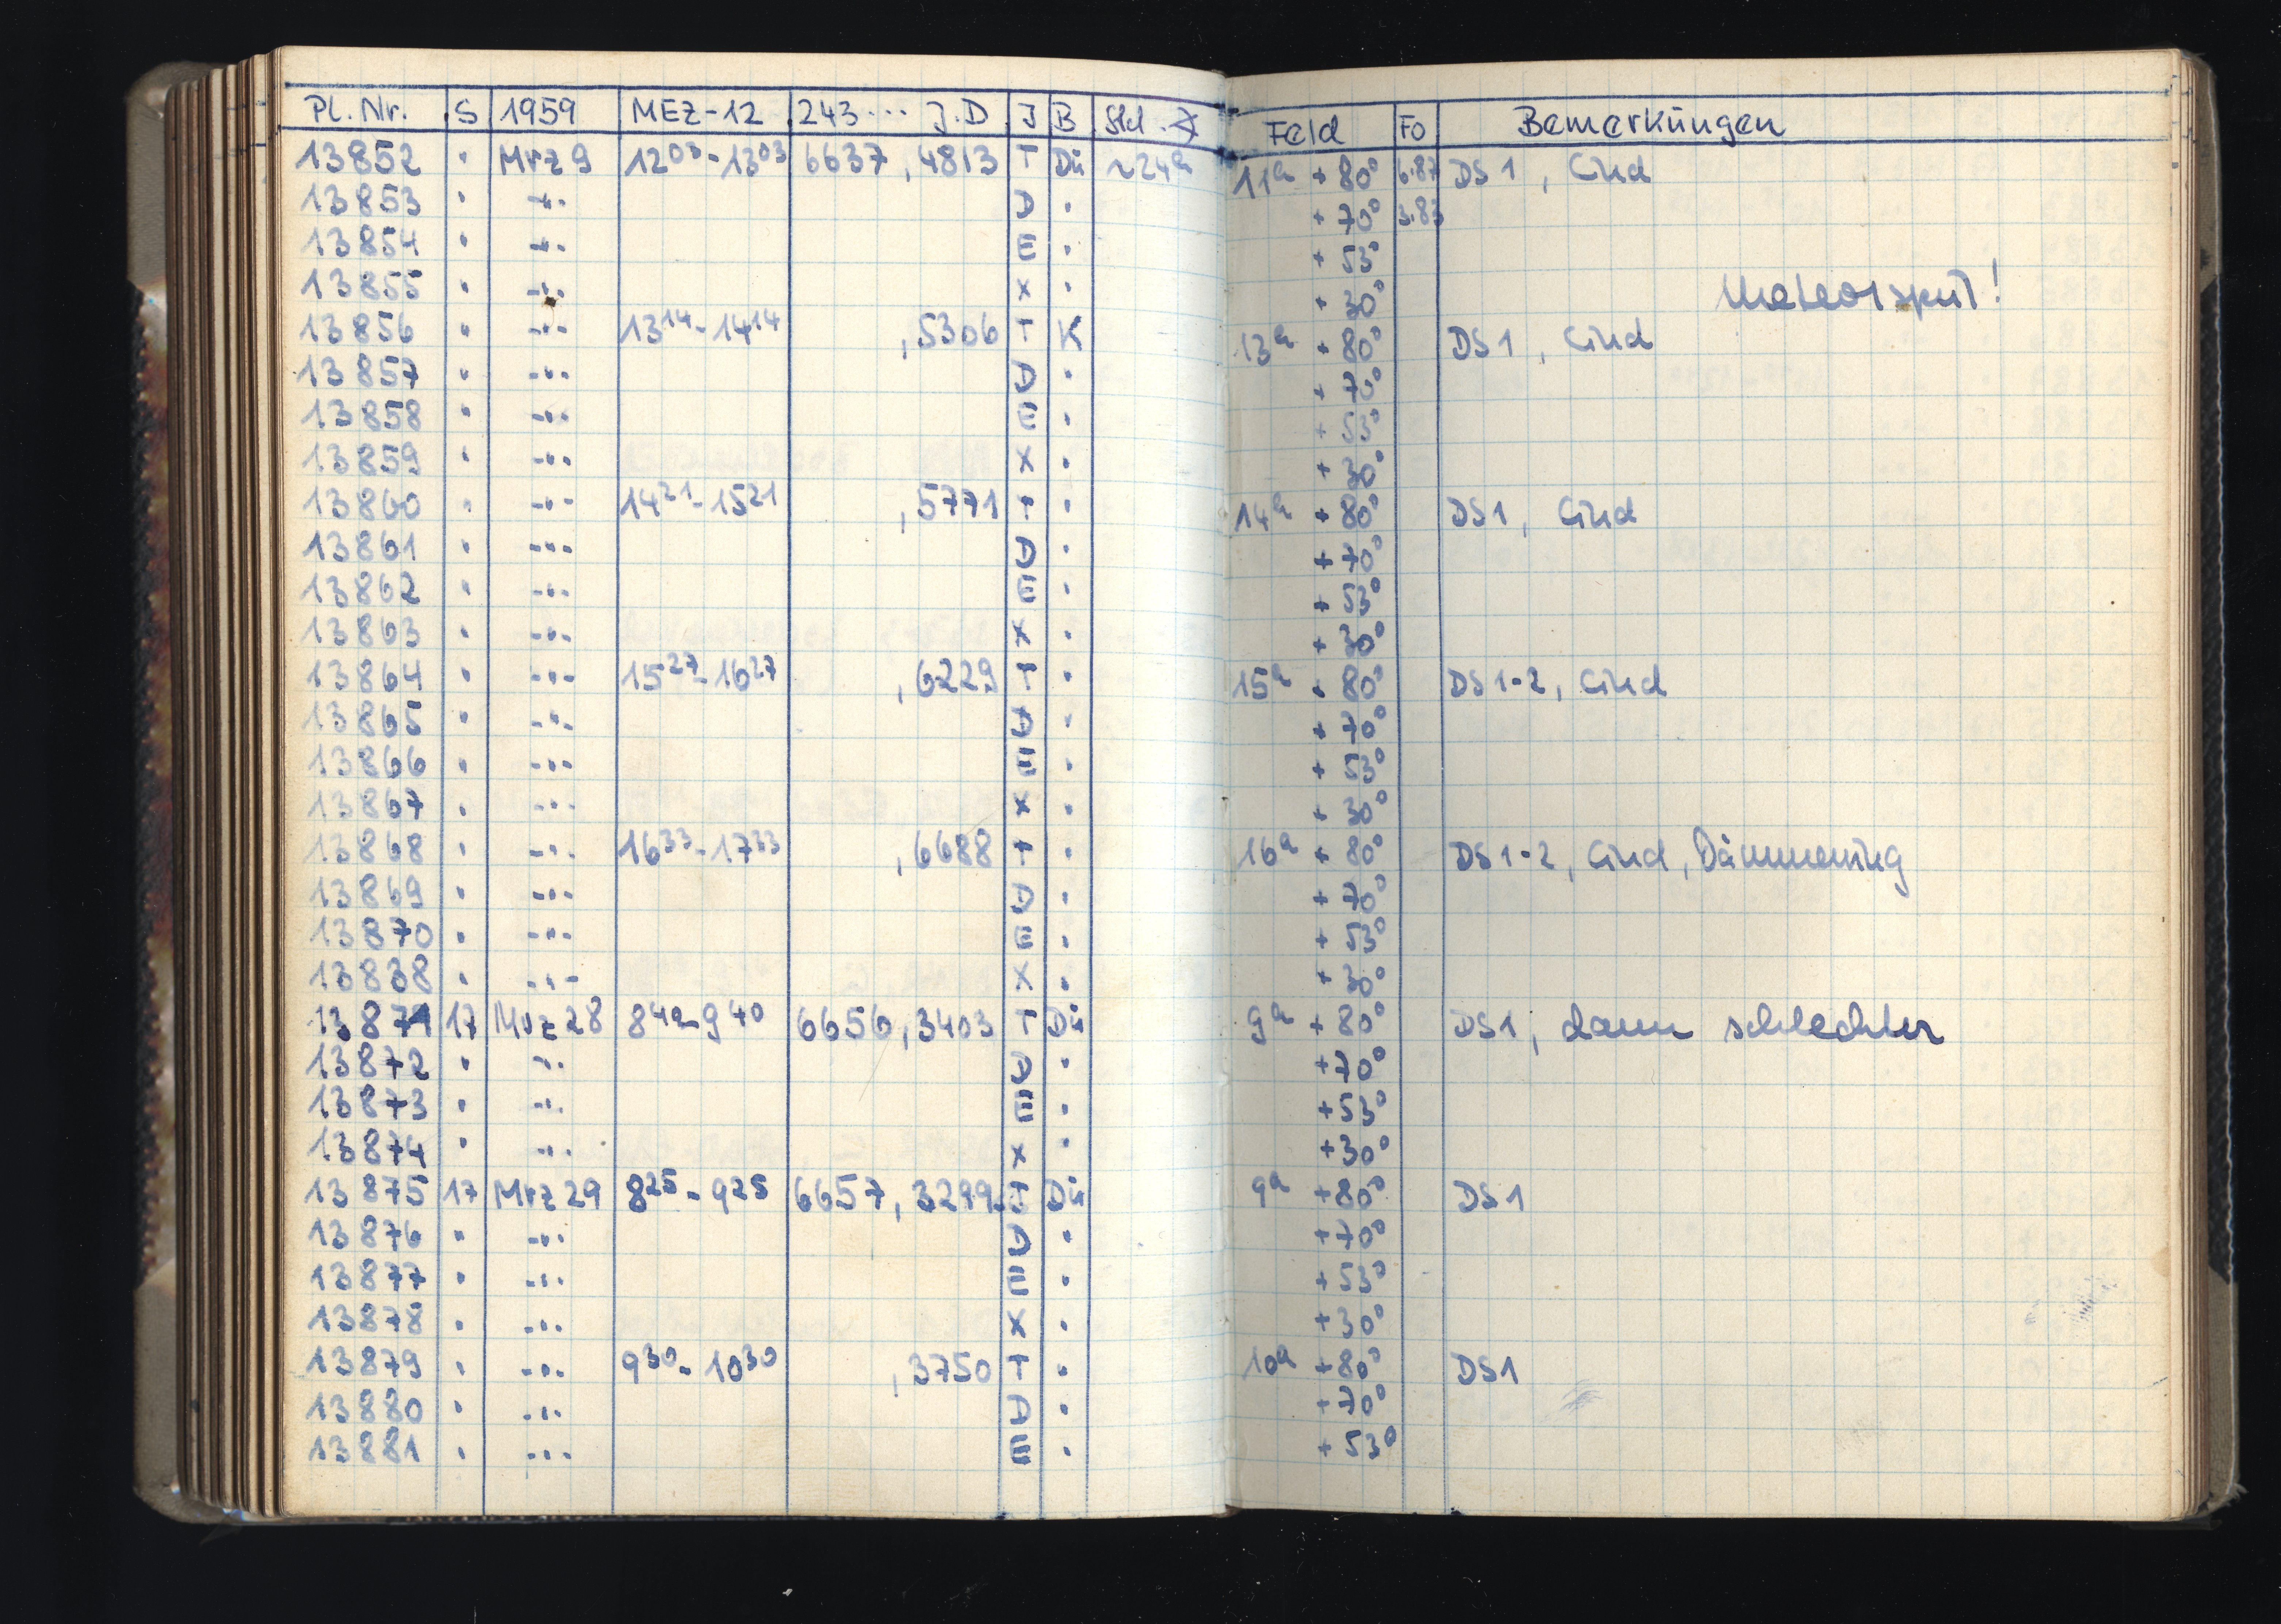 Pl. Nr. S 1959 MEZ-12 243.... J.D J B Std. ∢ Feld Fo Bemerkungen
13852 " Mrz 9 12⁰³-13⁰³ 6637,4813 T Dü ~24ᵃ 11ᵃ + 80° 6.87 DS 1, Cind
13853 " -"- D " + 70° 3.83
13854 " -"- E " + 53°
13855 " -"- X " + 30° Meteorspur!
13856 " -"- 13¹⁴-14¹⁴ ,5306 T K 13ᵃ + 80° DS 1, Cind
13857 " -"- D " + 70°
13858 " -"- E " + 53°
13859 " -"- X " + 30°
13860 " -"- 14²¹-15²¹ ,5771 T " 14ᵃ + 80° DS 1, Cind
13861 " -"- D " + 70°
13862 " -"- E " + 53°
13863 " -"- X " + 30°
13864 " -"- 15²⁷-16²⁷ ,6229 T " 15ᵃ + 80° DS 1-2, Cind
13865 " -"- D " + 70°
13866 " -"- E " + 53°
13867 " -"- X " + 30°
13868 " -"- 16³³-17³³ ,6688 T " 16ᵃ + 80° DS 1-2, Cind, Dämmerung
13869 " -"- D " + 70°
13870 " -"- E " + 53°
13838 " -"- X " + 30°
13871 17 Mrz 28 8⁴⁰-9⁴⁰ 6656,3403 T Dü 9ᵃ + 80° DS 1, dann schlechter
13872 " -"- D " + 70°
13873 " -"- E " + 53°
13874 " -"- X " + 30°
13875 17 Mrz 29 8²⁵-9²⁵ 6657,3299 T Dü 9ᵃ + 80° DS 1
13876 " -"- D " + 70°
13877 " -"- E " + 53°
13878 " -"- X " + 30°
13879 " -"- 9³⁰-10³⁰ ,3750 T " 10ᵃ + 80° DS 1
13880 " -"- D " + 70°
13881 " -"- E " + 53°